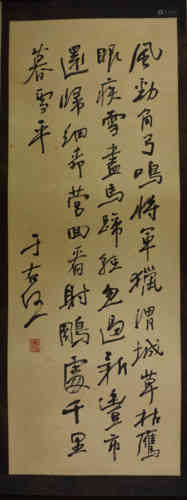 風勁角弓鳴將軍獵渭城草枯鷹
眼疾雪盡馬蹄輕忽過新豐市
還歸細柳營回看射鵰處千里
暮雲平
于右任